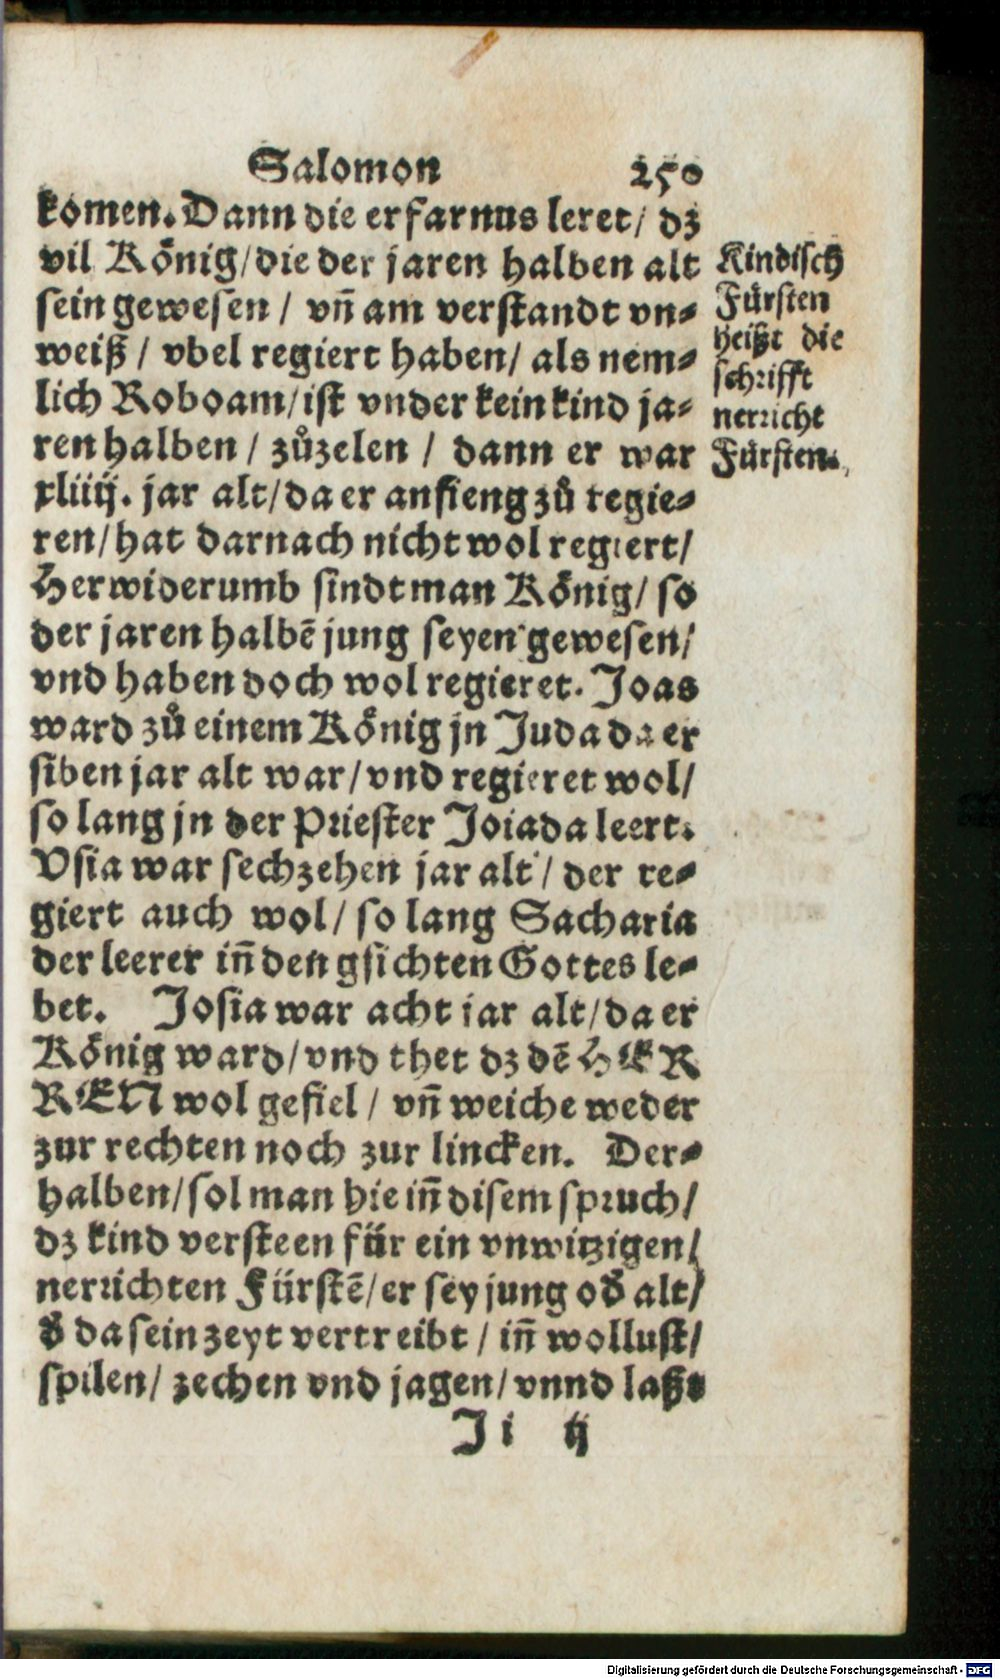 Salomon 250
komen. Dann die erfarnus leret / dz
vil König / die der jaren halben alt
sein gewesen / vñ am verstandt vn⸗
weiß / vbel regiert haben / als nem⸗
lich Roboam / ist vnder kein kind ja⸗
ren halben / zůzelen / dann er war
xliiij. jar alt / da er anfieng zů regie⸗
ren / hat darnach nicht wol regiert /
Herwiderumb findt man König / so
der jaren halbẽ jung seyen gewesen /
vnd haben doch wol regieret. Joas
ward zů einem König jn Juda da er
siben jar alt war / vnd regieret wol /
so lang jn der Priester Joiada leert.
Vsia war sechzehen jar alt / der re⸗
giert auch wol / so lang Sacharia
der leerer iñ den gsichten Gottes le⸗
bet. Josia war acht jar alt / da er
König ward / vnd thet dz dẽ HER
REN wol gefiel / vñ weiche weder
zur rechten noch zur lincken. Der⸗
halben / sol man hie iñ disem spruch /
dz kind versteen für ein vnwitzigen /
nerrichten Fürstẽ / er sey jung oď alt /
ď da sein zeyt vertreibt / iñ wollust /
spilen / zechen vnd jagen / vnnd laßt
Ji ij
Kindisch
Fürsten
heißt die
schrifft
nerricht
Fürsten.
Digitalisierung gefördert durch die Deutsche Forschungsgemeinschaft - DFG